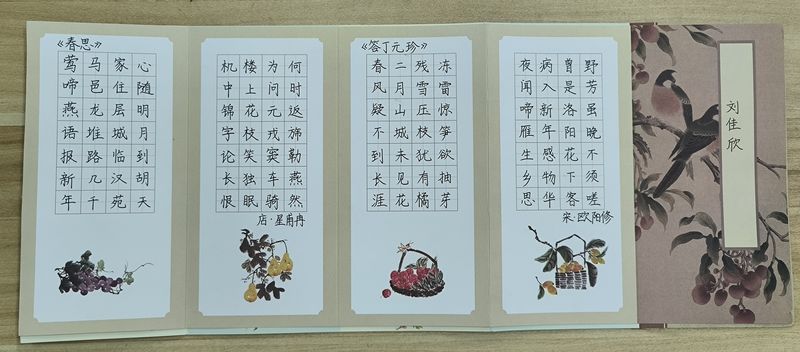 《春思》
莺啼燕语报新年
马邑龙堆路几千
家住层城临汉苑
心随明月到胡天
机中锦字论长恨
楼上花枝笑独眠
为问元戎窦车骑
何时返旆勒燕然
唐·皇甫冉
《答丁元珍》
春风疑不到长涯
二月山城未见花
残雪压枝犹有橘
冻雷惊笋欲抽芽
夜闻啼雁生乡思
病入新年感物华
曾是洛阳花下客
野芳虽晚不须嗟
宋·欧阳修
刘佳欣